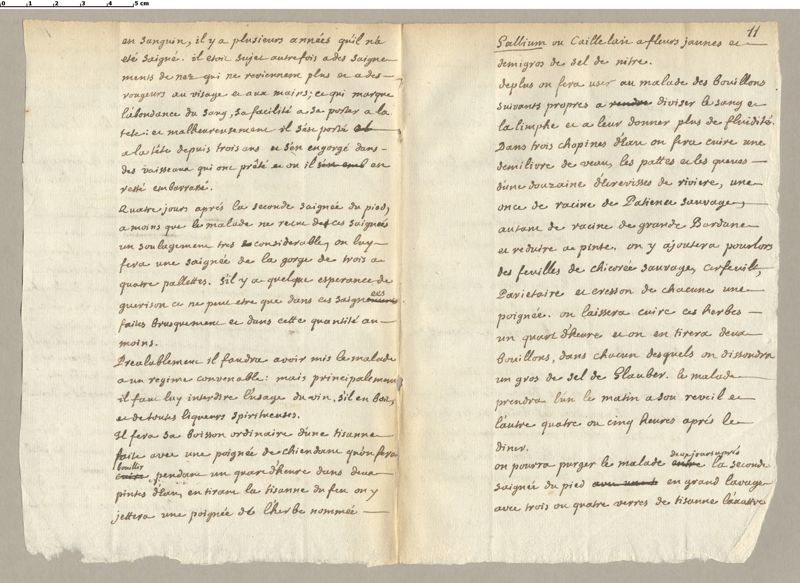 0 1 2 3 4 5 cm
en sanguin, il y a plusieurs années qu'il n'a
esté saigné. il étoit sujet autrefois a des saigne-
ments de nez qui ne reviennent plus et a des
rougeurs au visage et aux mains; ce qui marque
l'abondance du sang, sa facilité a se porter a la
tete: et malheureusement il s'est porté
a la tête depuis trois ans et s'en engorgé dans
des vaisseaux qui ont prêté et ou il en
resté embarrassé.
Quatre jours aprés la seconde saignée du pied,
a moins que le malade ne recut de ces saignées
un soulagement tres considerable, on luy
fera une saignée de la gorge de trois a
quatre pallettes. S'il y a quelque esperance de
guerison ce ne peut etre que dans ces saignées
faites brusquement et dans cette quantité au
moins.
Prealablement il faudra avoir mis le malade
a un regime convenable: mais principalement
il faut luy interdire l'usage du vin, s'il en boit,
et de toutes liqueurs spiritueuses.
Il fera sa boisson ordinaire d'une tisanne
faite avec une poignée de chiendent qu'on fera
bouillir
cuire, pendant un quart d'heure dans deux
pintes d'eau, en tirant la tisanne du feu on y
jettera une poignée de l'herbe nommée
11
Gallium ou Caillelait a fleurs jaunes et
demigros de sel de nitre.
de plus on fera user au malade des bouillons
suivants propres a rendre diviser le sang et
la limphe et a leur donner plus de fluidité.
Dans trois chopines d'eau on fera cuire une
demilivre de veau, les pattes et les queues
d'une douzaine d'ecrevisses de riviere, une
once de racine de Patience sauvage,
autant de racine de grande Bardane
et reduire a pinte. on y ajoutera pour lors
des feuilles de chicorée sauvage, cerfeuil,
Parietaire et cresson de chacune une
poignée. on laissera cuire ces herbes
un quart d'heure et on en tirera deux
bouillons, dans chacun desquels on dissoudra
un gros de sel de Glauber. le malade
prendra l'un le matin a son reveil et
l'autre quatre ou cinq heures aprés le
diner.
deux jours aprés
on pourra purger le malade entre la seconde
saignée du pied en grand lavage
avec trois ou quatre verres de tisanne laxative